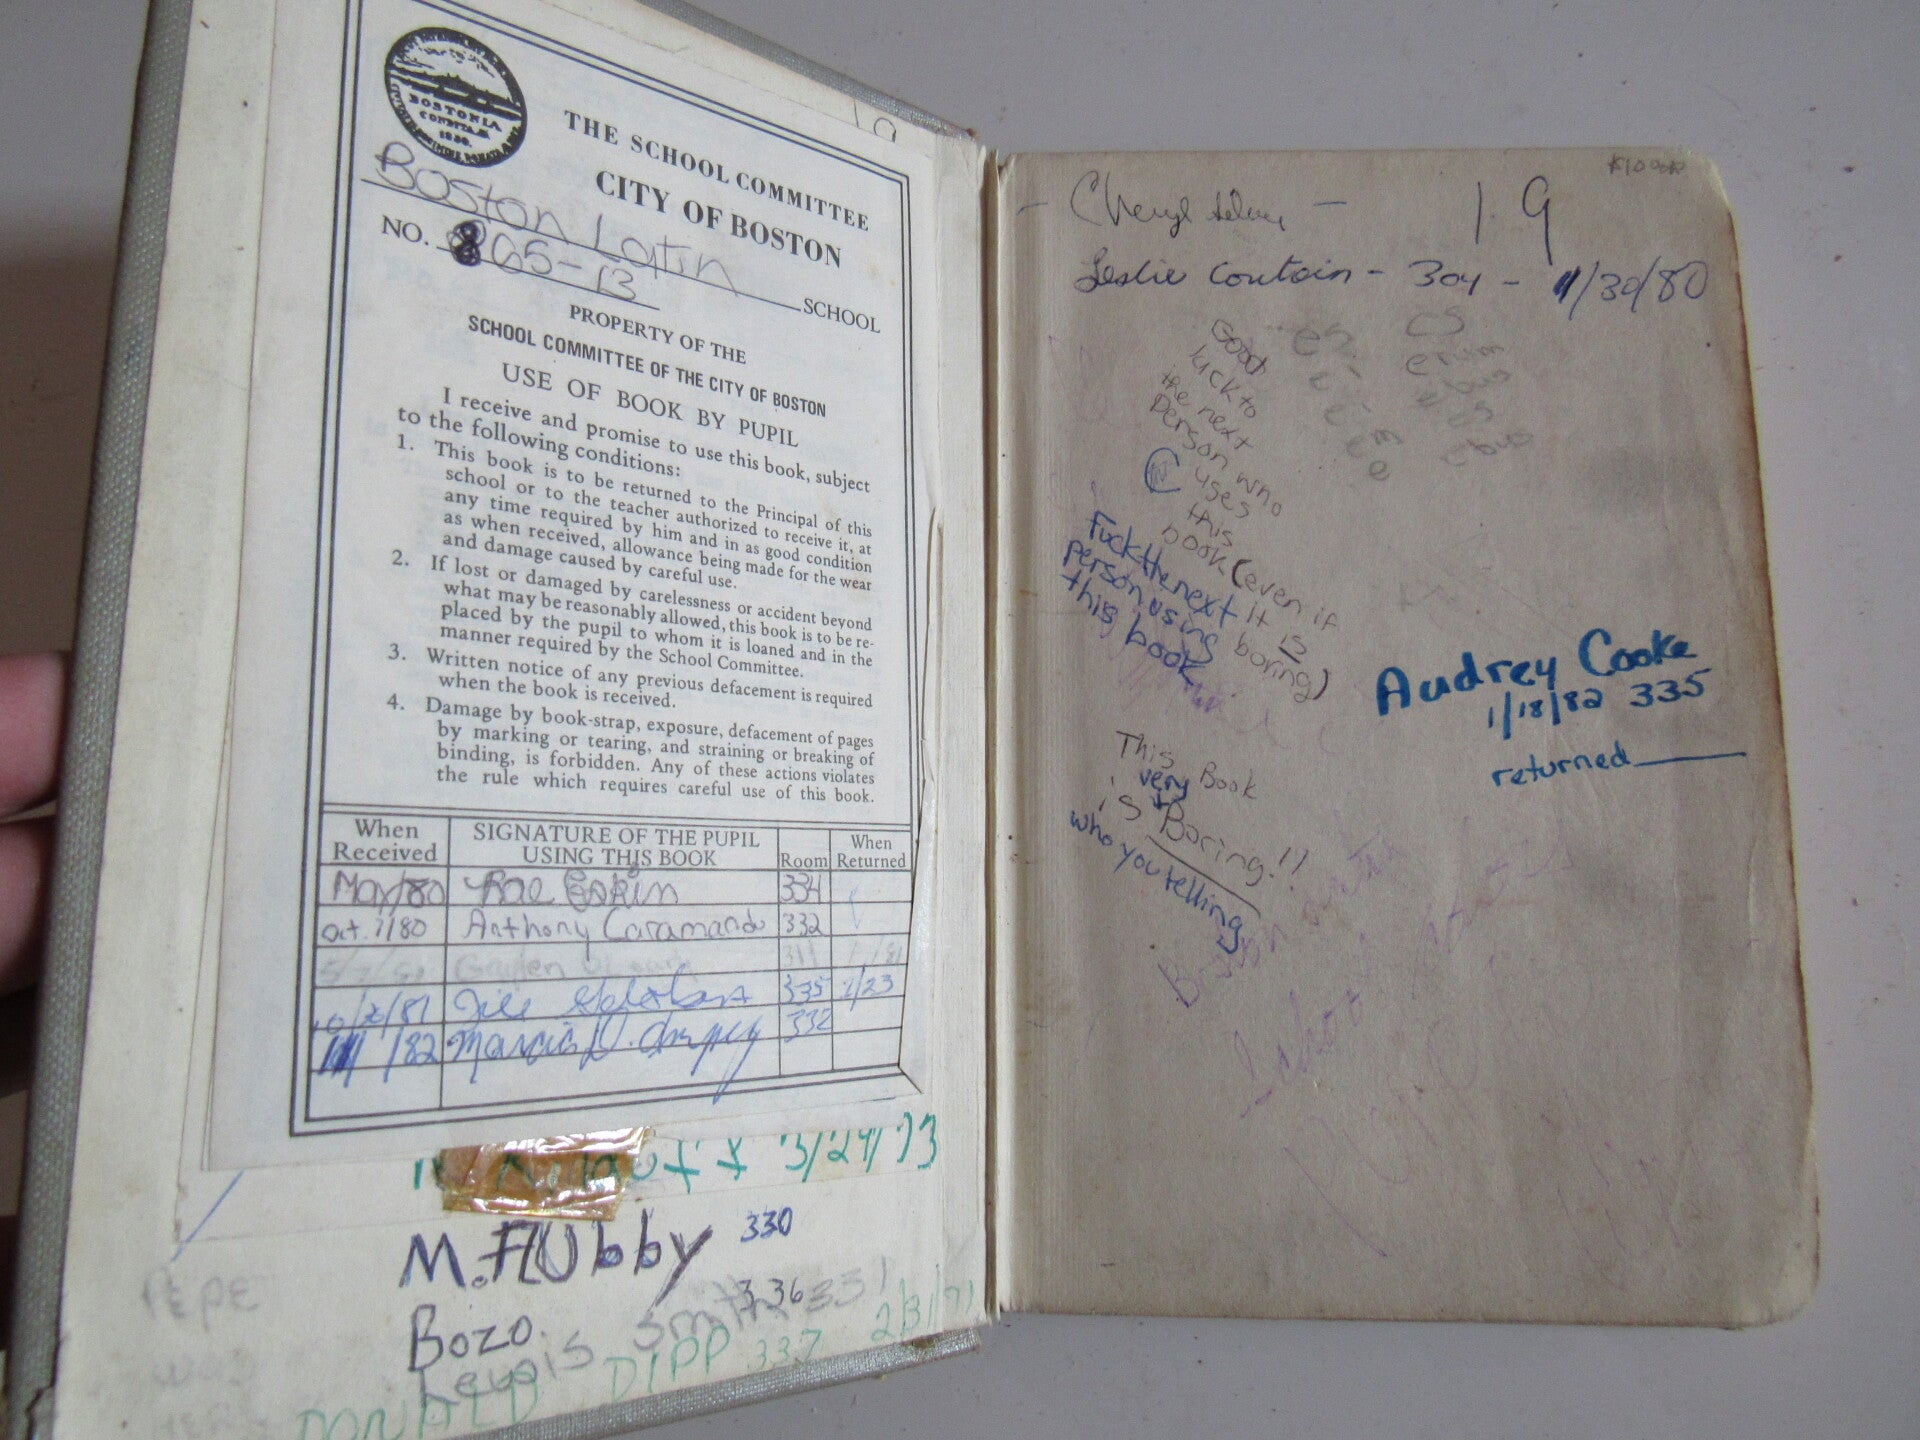 BOSTONIA
CONDITA A.
1630.
THE SCHOOL COMMITTEE
CITY OF BOSTON
Boston Latin SCHOOL
NO. 865-13
PROPERTY OF THE
SCHOOL COMMITTEE OF THE CITY OF BOSTON
USE OF BOOK BY PUPIL
I receive and promise to use this book, subject
to the following conditions:
1. This book is to be returned to the Principal of this
school or to the teacher authorized to receive it, at
any time required by him and in as good condition
as when received, allowance being made for the wear
and damage caused by careful use.
2. If lost or damaged by carelessness or accident beyond
what may be reasonably allowed, this book is to be re-
placed by the pupil to whom it is loaned and in the
manner required by the School Committee.
3. Written notice of any previous defacement is required
when the book is received.
4. Damage by book-strap, exposure, defacement of pages
by marking or tearing, and straining or breaking of
binding, is forbidden. Any of these actions violates
the rule which requires careful use of this book.
When Received SIGNATURE OF THE PUPIL USING THIS BOOK Room When Returned
May/80 Rae Erskin 334
oct. 7/80 Anthony Caramando 332
311
10/20/81 Jill 335 1/23
/82 Marcia D. 332
3/29/73
M. FlUbby 330
Bozo 336
Lewis Smith 331
DONALD DIPP 337 2/3/71
pepe
19
Cheryl 19
Leslie Coutain - 304 - 11/30/80
es
erum
ibus
Good
luck to
the next
person who
uses
this
book (even if
it is
boring)
Fuck the next
person using
this book
Audrey Cooke
1/18/82 335
returned
This Book
is very Boring!!
who you telling